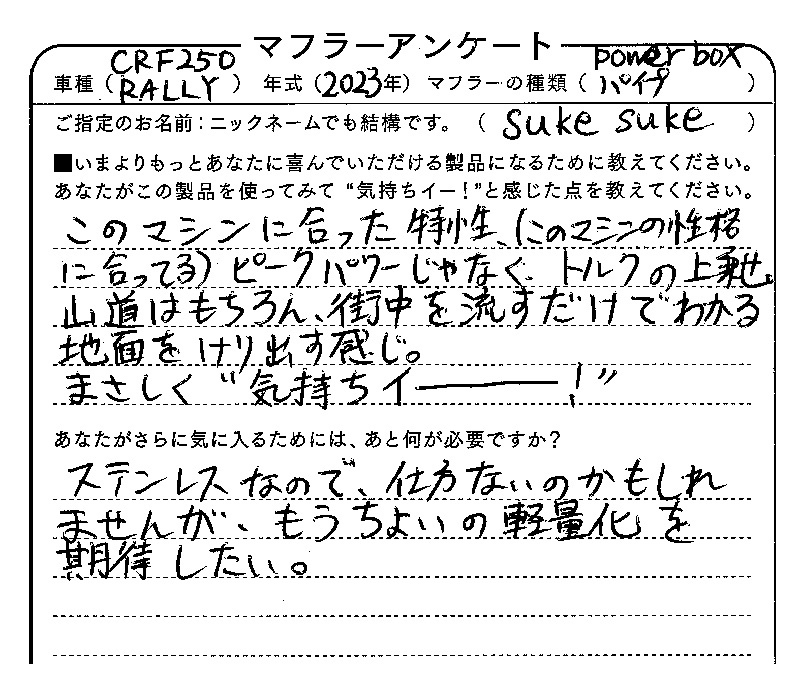 マフラーアンケート
車種（CRF250 RALLY）年式（2023年）マフラーの種類（power box パイプ）
ご指定のお名前：ニックネームでも結構です。（suke suke）
■いまよりもっとあなたに喜んでいただける製品になるために教えてください。
あなたがこの製品を使ってみて“気持ちイー！”と感じた点を教えてください。
このマシンに合った特性、（このマシンの性格
に合ってる）ピークパワーじゃなく、トルクの上乗せ
山道はもちろん、街中を流すだけでわかる
地面をけり出す感じ。
まさしく“気持ちイー！”
あなたがさらに気に入るためには、あと何が必要ですか？
ステンレスなので、仕方ないのかもしれ
ませんが、もうちょいの軽量化を
期待したい。